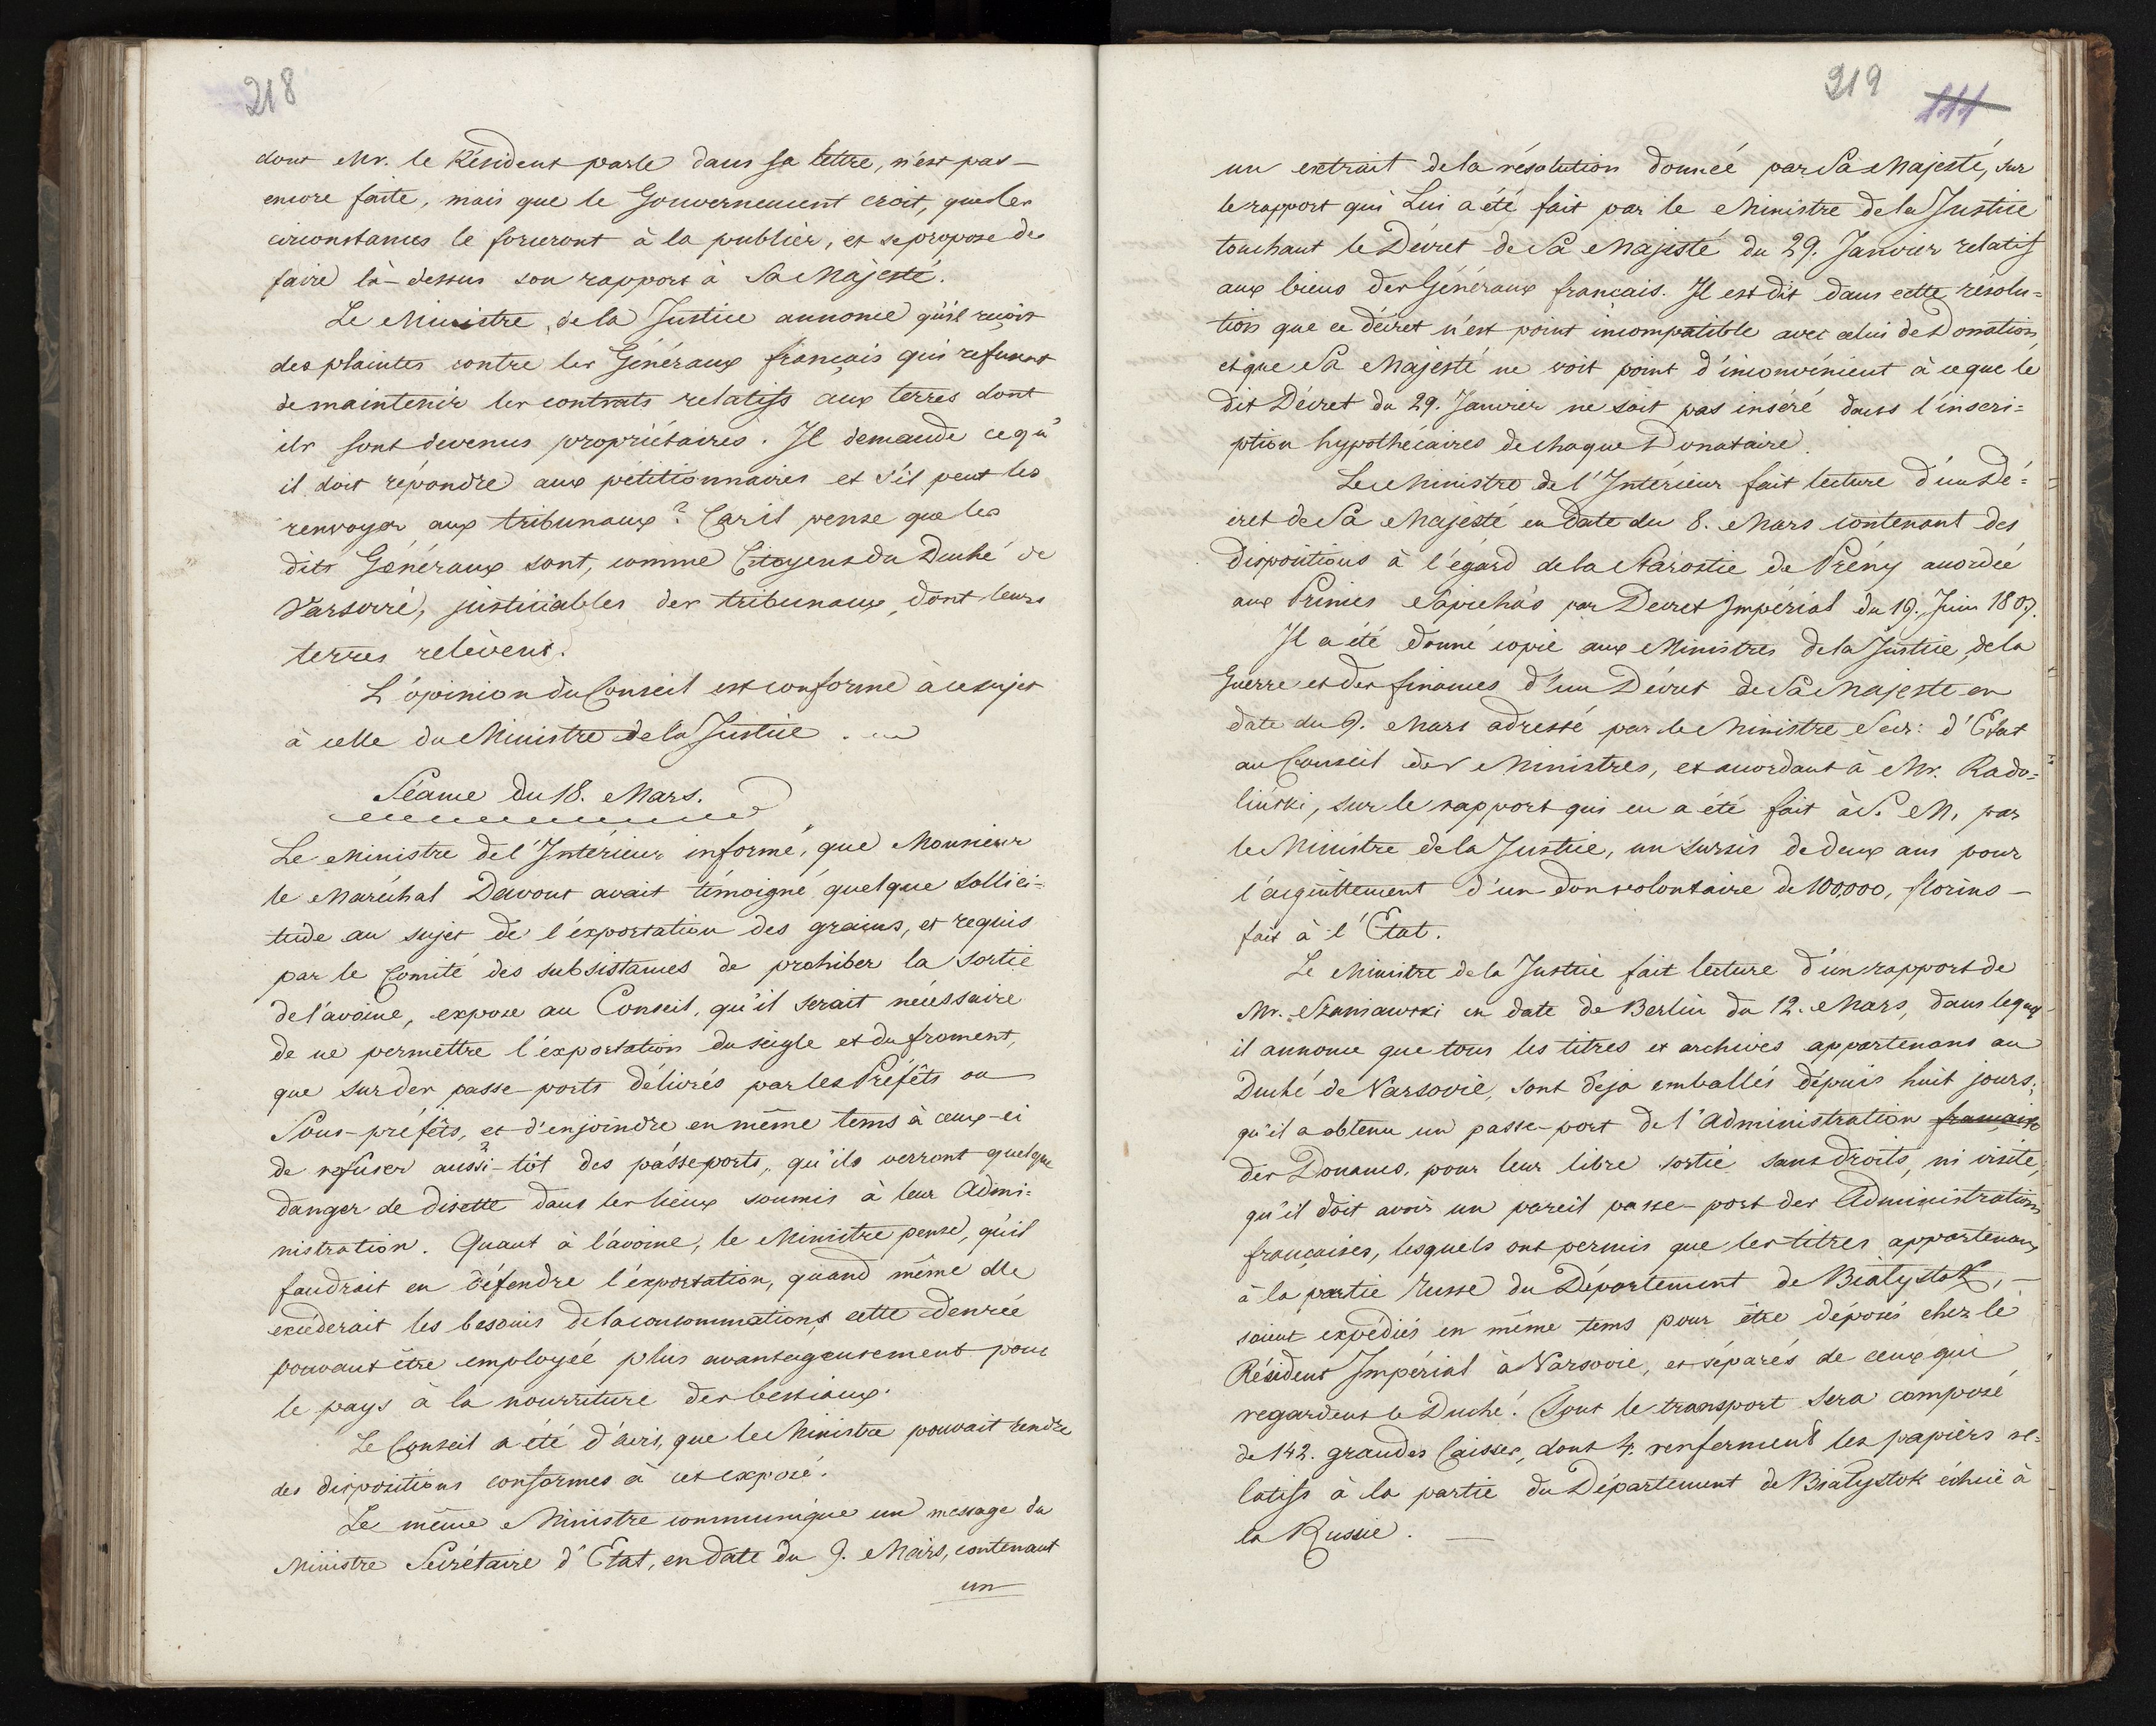 218
dont Mr. le Résident parle dans sa lettre, n'est pas –
encore faite, mais que le Gouvernement croit, que les
circonstances le forceront à la publier, et se propose de
faire là-dessus son rapport à Sa Majesté.
Le Ministre de la Justice annonce qu'il reçoit
des plaintes contre les Généraux français qui refusent
de maintenir les contrats relatifs aux terres dont
ils sont devenus propriétaires. Il demande ce qu'
il doit répondre aux pétitionnaires et s'il peut les
renvoyer aux tribunaux? Car il pense que les
dits Généraux sont, comme Citoyens du Duché de
Varsovie, justiciables des tribunaux, dont leurs
terres relèvent.
L'opinion du Conseil est conforme à ce sujet
à celle du Ministre de la Justice.
Séance du 18. Mars.
Le Ministre de l'Intérieur informé, que Monsieur
le Maréchal Davout avait témoigné quelque sollici=
tude au sujet de l'exportation des grains, et requis
par le Comité des subsistances de prohiber la sortie
de l'avoine, expose au Conseil, qu'il serait nécessaire
de ne permettre l'exportation du seigle et du froment,
que sur des passe-ports délivrés par les Préfêts ou
Sous-préfêts, et d'enjoindre en même tems à ceux-ci
de refuser aussi-tôt des passeports, qu'ils verront quelque
danger de disette dans les lieux soumis à leur Admi=
nistration. Quant à l'avoine, le Ministre pense, qu'il
faudrait en défendre l'exportation, quand même elle
excéderait les besoins de la consommation, cette denrée
pouvant être employée plus avantageusement pour
le pays à la nourriture des bestiaux.
Le Conseil a été d'avis, que le Ministre pouvait rendre
des dispositions conformes à cet exposé.
Le même Ministre communique un message du
Ministre Secrétaire d'Etat, en date du 9. Mars, contenant
un
219
111
un extrait de la résolution donnée par Sa Majesté, sur
le rapport qui Lui a été fait par le Ministre de la Justice
touchant le Décret de Sa Majesté du 29. Janvier relatif
aux biens des Généraux français. Il est dit dans cette résolu=
tion que ce décret n'est point incompatible avec celui de Donation,
et que Sa Majesté ne voit point d'inconvénient à ce que le
dit Décret du 29. Janvier ne soit pas inséré dans l'inscri=
ption hypothécaires de chaque Donataire.
Le Ministre de l'Intérieur fait lecture d'un Dé=
cret de Sa Majesté en date du 8. Mars contenant des
dispositions à l'égard de la Starostie de Prény accordée
aux Princes Sapieha's par Decret Impérial du 19. Juin 1807.
Il a été donné copie aux Ministres de la Justice, de la
Guerre et des finances d'un Décret de Sa Majesté en
date du 9. Mars adressé par le Ministre Secr: d'Etat
au Conseil des Ministres, et accordant à Mr. Rado=
linski, sur le rapport qui en a été fait à S. M. par
le Ministre de la Justice, un sursis de deux ans pour
l'acquittement d'un don volontaire de 100,000, florins –
fait à l'Etat.
Le Ministre de la Justice fait lecture d'un rapport de
Mr. Szaniawski en date de Berlin du 12. Mars, dans lequel
il annonce que tous les titres et archives appartenans au
Duché de Varsovie, sont déja emballés dépuis huit jours;
qu'il a obtenu un passe-port de l'Administration française
des Douanes, pour leur libre sortie sans droits, ni visite,
qu'il doit avoir un pareil passe-port des Administrations
françaises, lesquels ont permis que les titres appartenans
à la partie russe du Département de Bialystok, –
soient expédiés en même tems pour être déposés chez le
Résident Impérial à Varsovie, et séparés de ceux qui
regardent le Duché. Tout le transport sera composé
de 142. grandes Caisses, dont 4. renferment les papiers re=
latifs à la partie du Département de Bialystok échuë à
la Russie. –